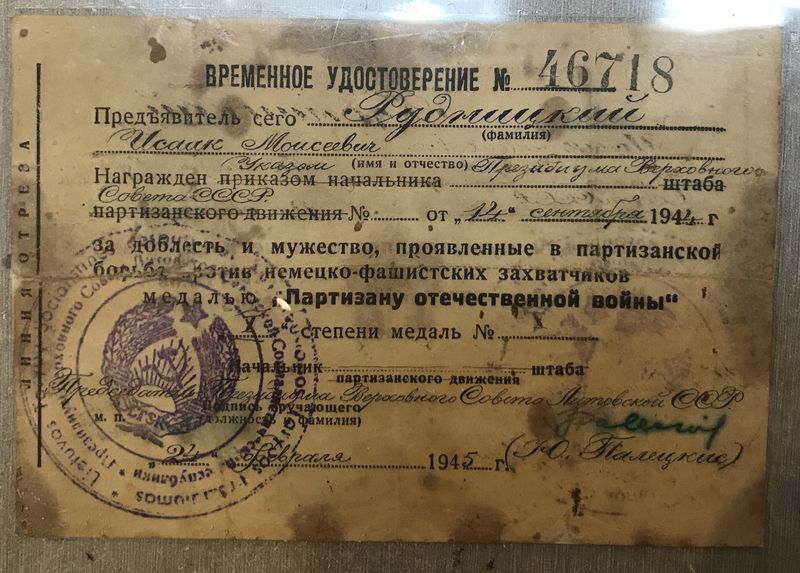 ВРЕМЕННОЕ УДОСТОВЕРЕНИЕ № 46718
Предъявитель сего Рудницкий
(фамилия)
Исаак Моисеевич
(имя и отчество)
Указом Президиума Верховного
Награжден приказом начальника штаба
Совета СССР
партизанского движения № от „14" сентября 1944 г
за доблесть и мужество, проявленные в партизанской
борьбе против немецко-фашистских захватчиков
медалью „Партизану отечественной войны"
X степени медаль № X
Начальник штаба
партизанского движения
Председатель Президиума Верховного Совета Литовской ССР
м. п. Подпись вручающего
(должность фамилия)
„24" февраля 1945 г. (Ю. Палецкис)
ЛИНИЯ ОТРЕЗА